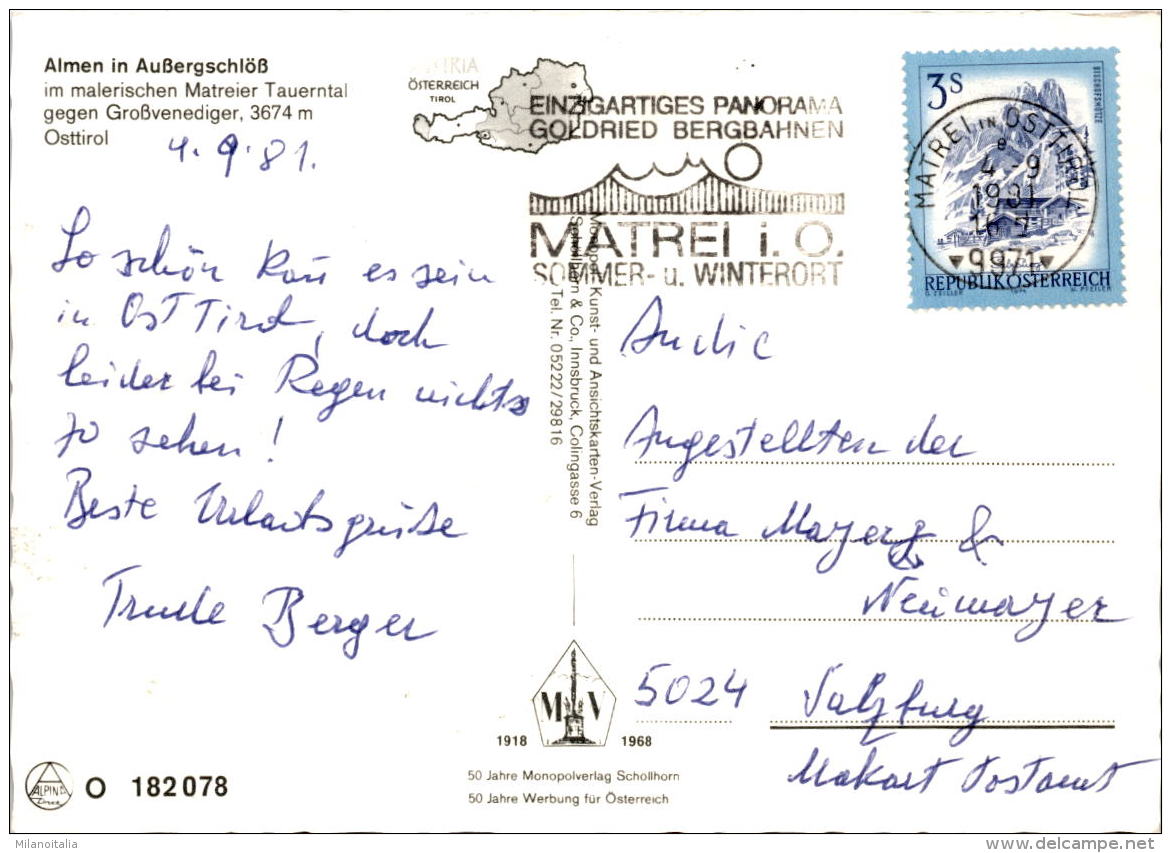 Almen in Außergschlöß
im malerischen Matreier Tauerntal
gegen Großvenediger, 3674 m
Osttirol
4.9.81.
So schön kan es sein
in Ost Tirol, doch
leider bei Regen nichts
zo sehen!
Beste Urlaubsgrüße
Trude Berger
AUSTRIA
ÖSTERREICH
TIROL
EINZIGARTIGES PANORAMA
GOLDRIED BERGBAHNEN
MATREI i. O.
SOMMER- u. WINTERORT
3 S
BISCHOFSMÜTZE
REPUBLIK ÖSTERREICH
O. ZEILLER 1974 G. PFEILER
MATREI IN OSTTIROL
a
4.-9
1981
9971
Monopol Kunst- und Ansichtskarten-Verlag
Schöllhorn & Co., Innsbruck, Colingasse 6
Tel. Nr. 05222/29816
An die
Angestellten der
Firma Mayer &
Neumayer
5024 Salzburg
Makart Postamt
M V
1918 1968
50 Jahre Monopolverlag Schöllhorn
50 Jahre Werbung für Österreich
ALPINA
Druck
O 182078
Milanoitalia
delcampe.net